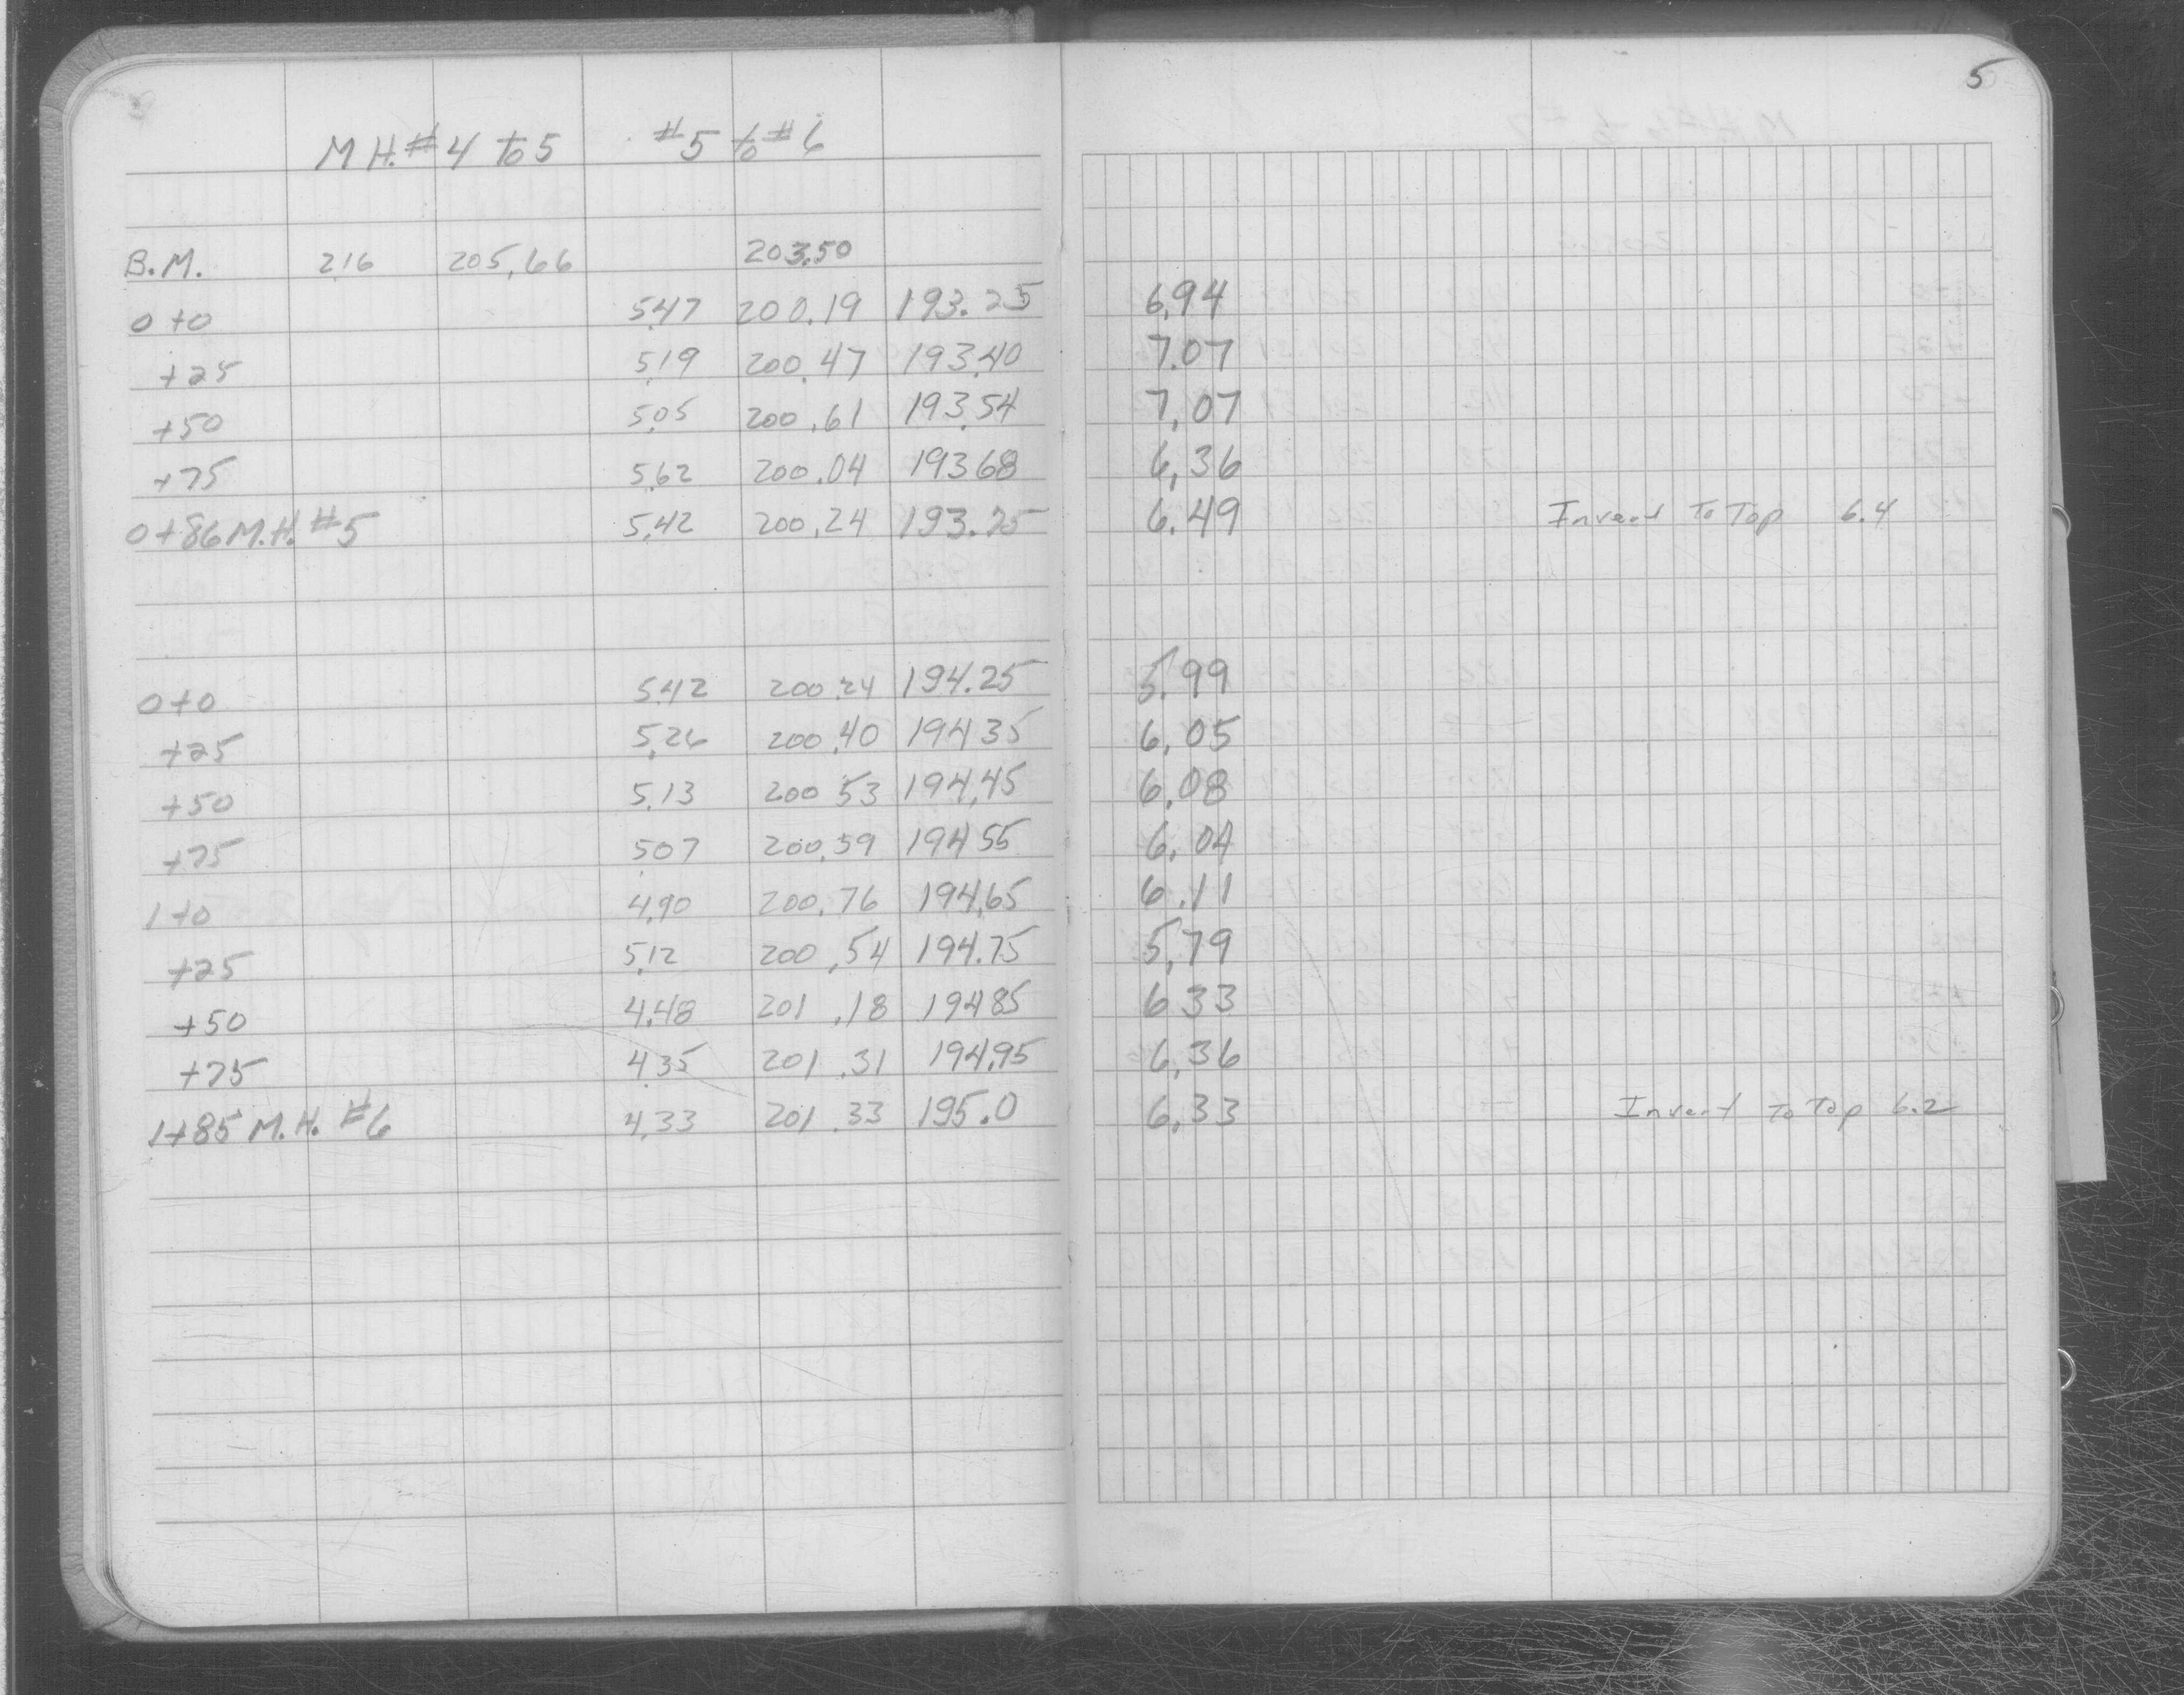 5
M.H.#4 to 5 #5 to #6
B.M. 2.16 205.66 203.50
0+0 5.47 200.19 193.25 6.94
+25 5.19 200.47 193.40 7.07
+50 5.05 200.61 193.54 7.07
+75 5.62 200.04 193.68 6.36
0+86 M.H. #5 5.42 200.24 193.75 6.49 Invert To Top 6.4
0+0 5.42 200.24 194.25 5.99
+25 5.26 200.40 194.35 6.05
+50 5.13 200.53 194.45 6.08
+75 5.07 200.59 194.55 6.04
1+0 4.90 200.76 194.65 6.11
+25 5.12 200.54 194.75 5.79
+50 4.48 201.18 194.85 6.33
+75 4.35 201.31 194.95 6.36
1+85 M.H. #6 4.33 201.33 195.0 6.33 Invert To Top 6.2